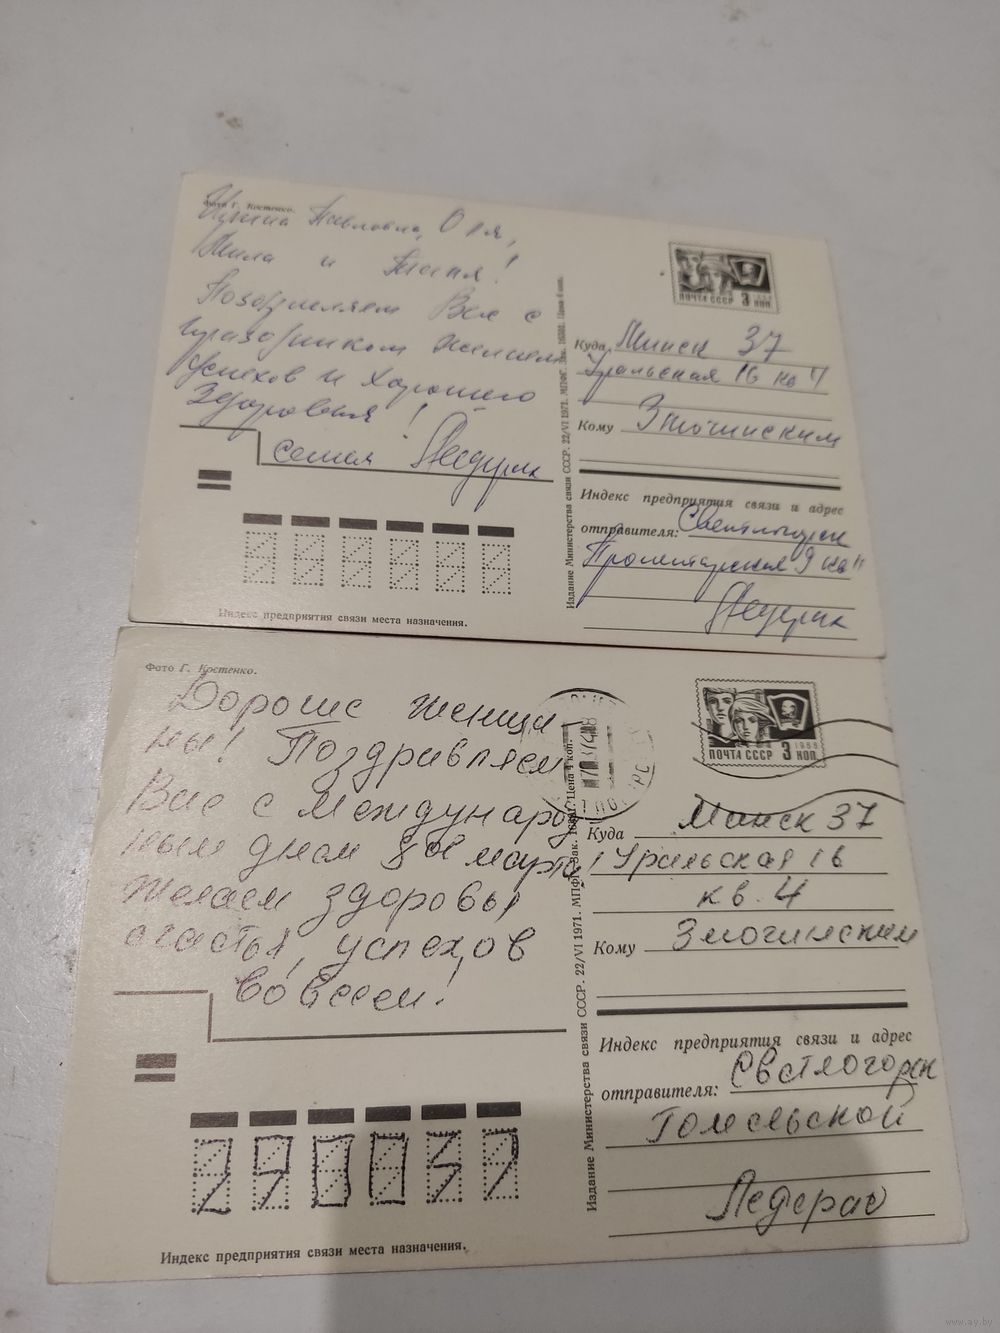 Фото Г. Костенко.
Павловна, Оля,
Мила и Таня!
Поздравляем Вас с
праздником желаем
успехов и хорошего
здоровья!
семья
ПОЧТА СССР 3 КОП.
Куда Минск 37
Уральская 16 кв 4
Кому Змочинским
Индекс предприятия связи и адрес
отправителя: Светлогорск
Пролетарская 9 кв
Индекс предприятия связи места назначения.
Издание Министерства связи СССР. 22/VI 1971. МПФГ. Зак. Цена 4 коп.
Фото Г. Костенко.
Дорогие женщи
ны! Поздравляем
Вас с международ
ным днем 8ое марта,
желаем здоровья
счастья, успехов
во всем!
1966
ПОЧТА СССР 3 КОП.
Куда Минск 37
Уральская 16
кв. 4
Кому Змочинским
Индекс предприятия связи и адрес
отправителя: Светлогорск
Гомельской
220037
Индекс предприятия связи места назначения.
Издание Министерства связи СССР. 22/VI 1971. МПФГ. Зак. Цена 4 коп.
www.ay.by